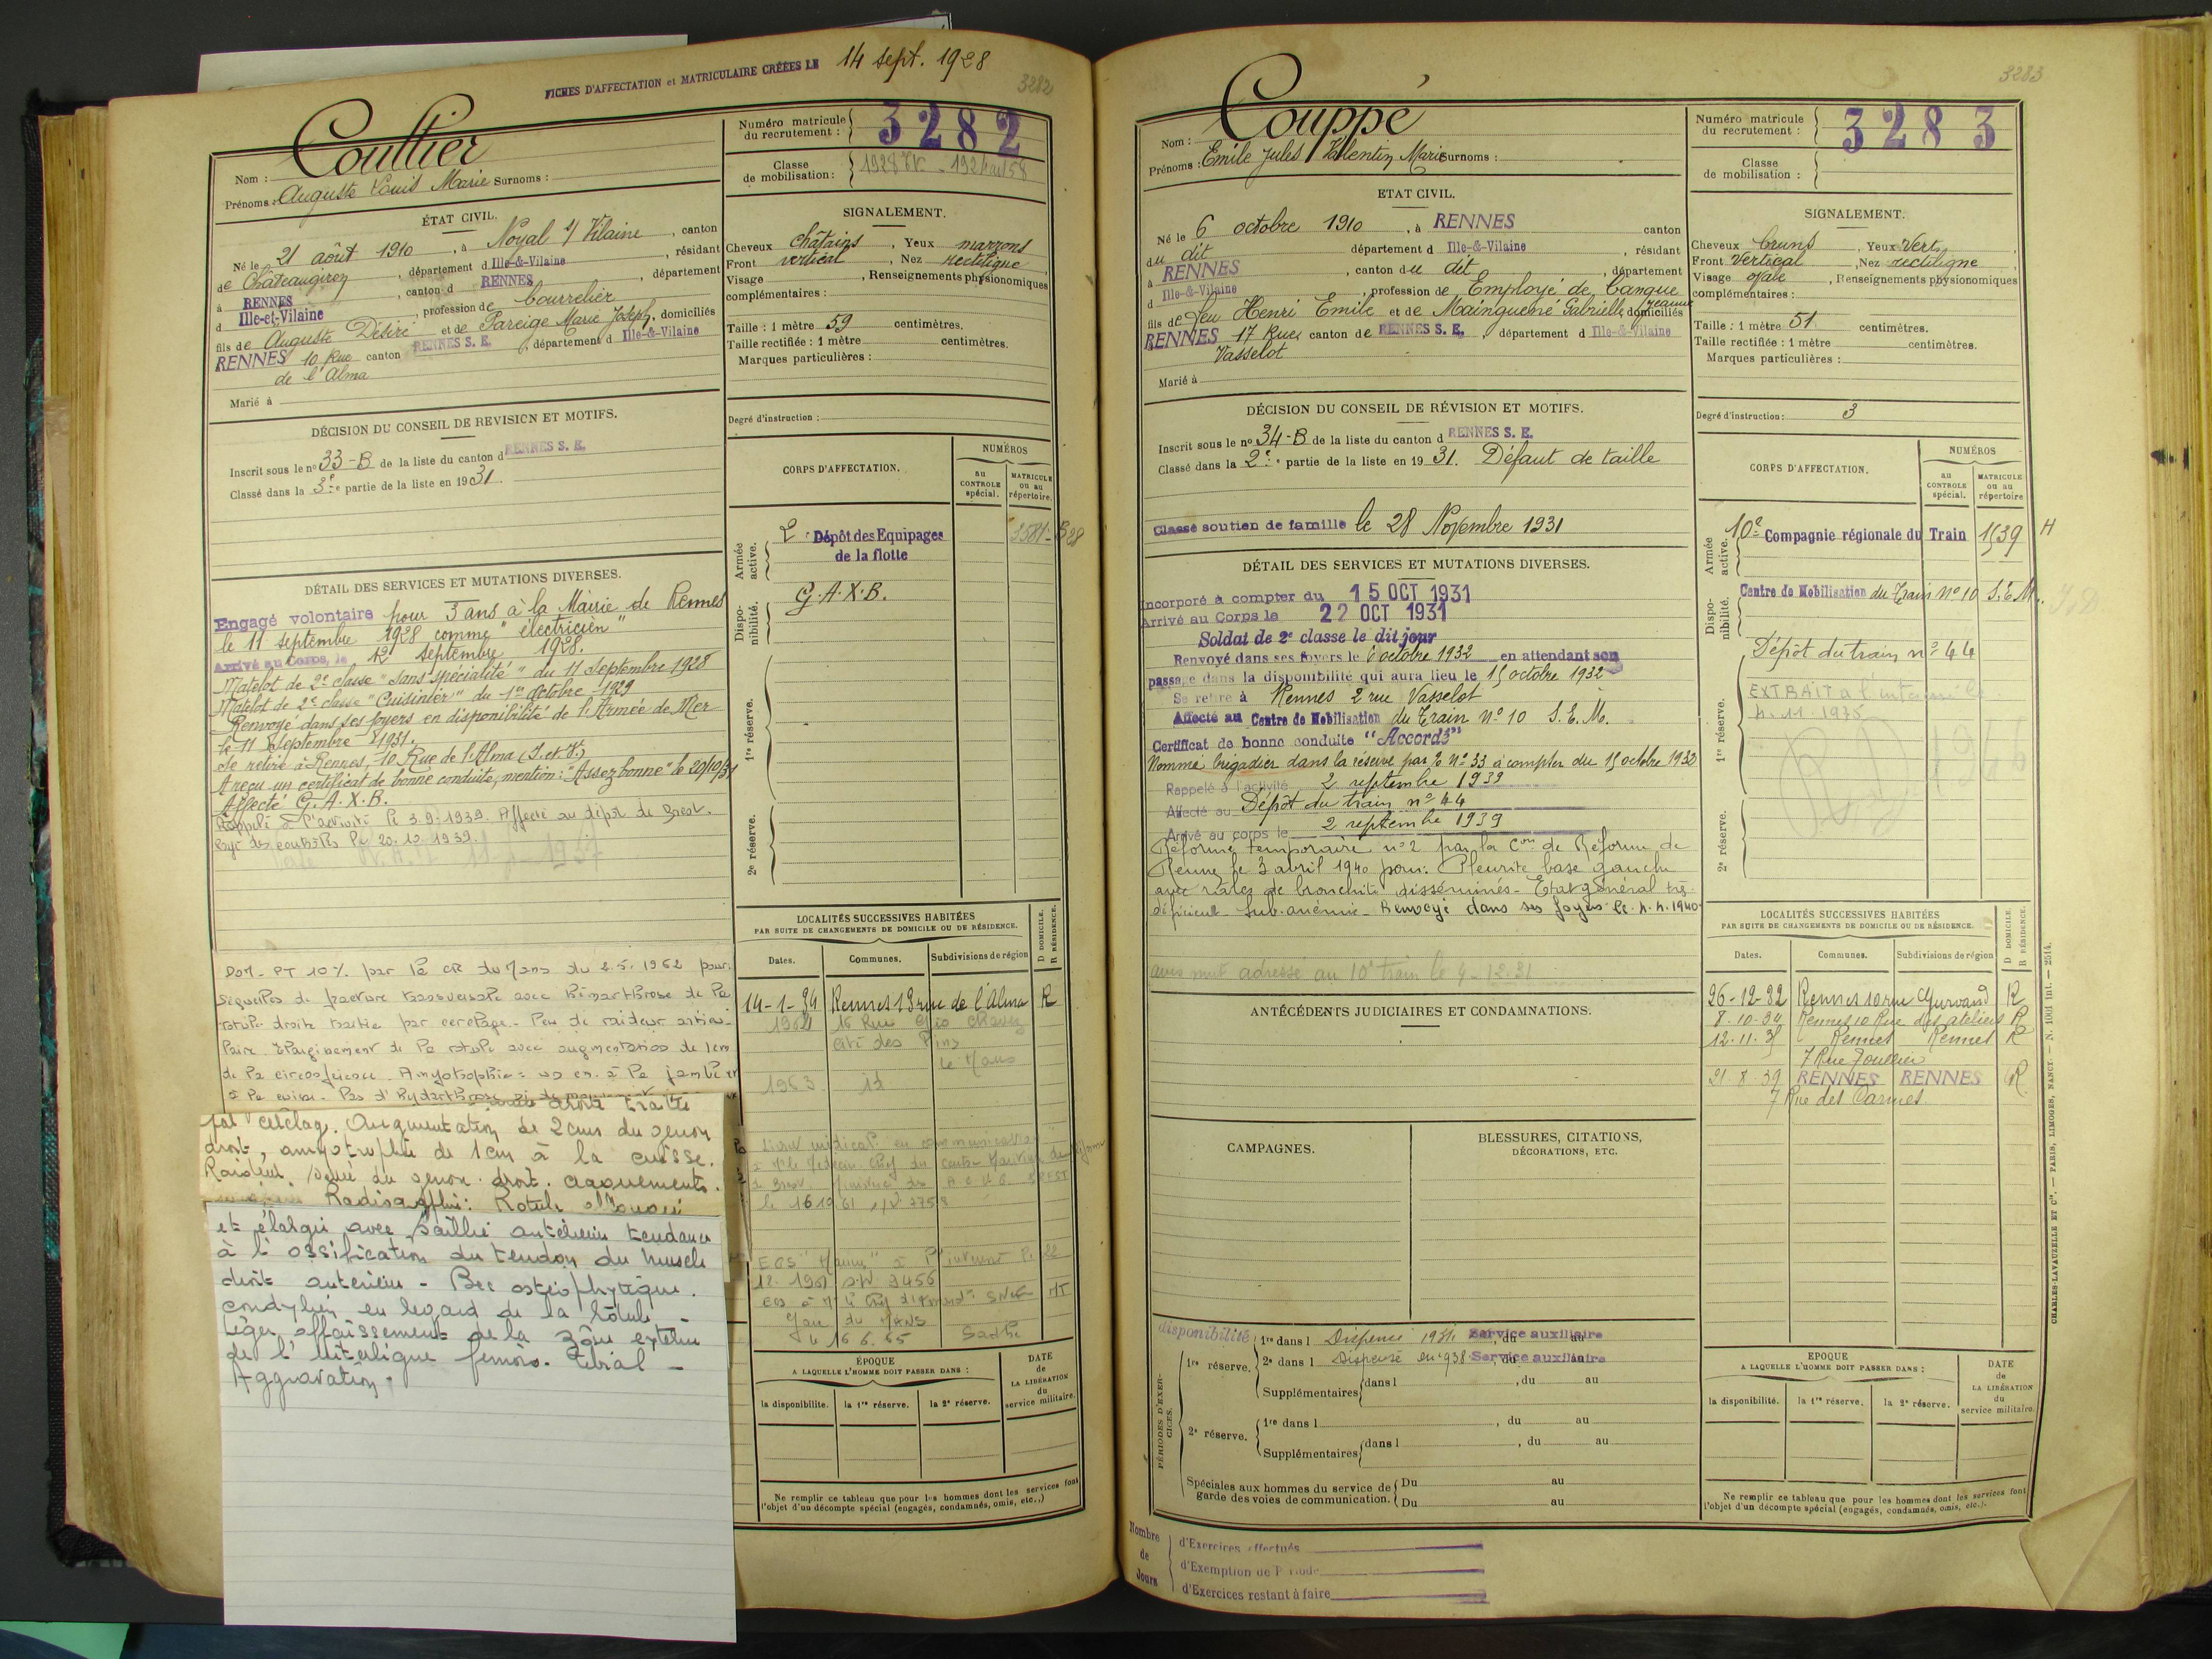 FICHES D'AFFECTATION et MATRICULAIRE CRÉÉES LE 14 sept. 1928
3282
Nom : Coultier
Prénoms : Auguste Louis Marie Surnoms :
Numéro matricule du recrutement : 3282
Classe de mobilisation : 1928
ÉTAT CIVIL.
Né le 21 août 1910, à Noyal s/ Vilaine, canton
de Châteaugiron, département d Ille-&-Vilaine, résidant
à RENNES, canton d RENNES, département
d Ille-et-Vilaine, profession de bourrelier
fils de Auguste Désiré et de Pareige Marie Joseph, domiciliés
RENNES 10 Rue canton RENNES S. E., département d Ille-&-Vilaine
de l'Alma
Marié à
SIGNALEMENT.
Cheveux châtains, Yeux marrons
Front vertical, Nez rectiligne
Visage , Renseignements physionomiques
complémentaires :
Taille : 1 mètre 59 centimètres.
Taille rectifiée : 1 mètre centimètres.
Marques particulières :
Degré d'instruction :
DÉCISION DU CONSEIL DE REVISION ET MOTIFS.
Inscrit sous le n° 33-B de la liste du canton d RENNES S. E.
Classé dans la 3e partie de la liste en 1931.
DÉTAIL DES SERVICES ET MUTATIONS DIVERSES.
Engagé volontaire pour 3 ans à la Mairie de Rennes
le 11 septembre 1928 comme "électricien"
Arrivé au Corps, le 12 septembre 1928.
Matelot de 2e classe "sans spécialité" du 11 Septembre 1928
Matelot de 2e classe "Cuisinier" du 1er Octobre 1929
Renvoyé dans ses foyers en disponibilité de l'Armée de Mer
le 11 Septembre 1931.
Se retire à Rennes, 10 Rue de l'Alma (I. et V.)
A reçu un certificat de bonne conduite, mention : "Assez bonne" le 20/10/31
Affecté G.A.X.B.
Rappelé à l'activité le 3.9.1939. Affecté au dépôt de Brest.
Rayé des contrôles le 20.10.1939.
DOM - PT 10% par la CR du Mans du 2.5.1962 pour
séquelles de fracture transversale avec de la
rotule droite traitée par cerclage. Peu de raideur
Elargissement de la rotule avec augmentation de 1cm
de la circonférence. Amyotrophie
par cerclage. Augmentation de 2cms du genou
droit, amyotrophie de 1cm à la cuisse.
Raideur du genou droit. craquements.
Radiographie : Rotule
et élargie avec saillie antérieure tendance
à l'ossification du tendon du muscle
droit antérieur - Bec ostéophytique
condylien en regard de la rotule -
léger affaissement de la zône externe
de l'interligne fémoro-tibial -
Aggravation.
CORPS D'AFFECTATION.
NUMÉROS
au CONTROLE spécial.
MATRICULE ou au répertoire.
Armée active.
2e Dépôt des Equipages
de la flotte
3581-B28
Disponibilité.
G.A.X.B.
1re réserve.
2e réserve.
LOCALITÉS SUCCESSIVES HABITÉES
PAR SUITE DE CHANGEMENTS DE DOMICILE OU DE RÉSIDENCE.
Dates. Communes. Subdivisions de région D DOMICILE. R RÉSIDENCE.
14-1-34 Rennes 13 rue de l'Alma R
16 Rue
Cité des Pins
Le Mans
1963 id
ÉPOQUE
A LAQUELLE L'HOMME DOIT PASSER DANS :
la disponibilité. la 1re réserve. la 2e réserve.
DATE de LA LIBÉRATION du service militaire.
Ne remplir ce tableau que pour les hommes dont les services font
l'objet d'un décompte spécial (engagés, condamnés, omis, etc.,)
3283
Nom : Couppé
Prénoms : Emile Jules Valentin Marie Surnoms :
Numéro matricule du recrutement : 3283
Classe de mobilisation :
ETAT CIVIL.
Né le 6 octobre 1910, à RENNES canton
du dit département d Ille-&-Vilaine, résidant
à RENNES, canton du dit, département
d Ille-&-Vilaine, profession de Employé de banque
fils de feu Henri Emile et de Mainguené Gabrielle Jeanne domiciliés
RENNES 17 Rue canton de RENNES S. E., département d Ille-&-Vilaine
Vasselot
Marié à
SIGNALEMENT.
Cheveux bruns, Yeux Vert
Front Vertical, Nez rectiligne
Visage ovale, Renseignements physionomiques
complémentaires :
Taille : 1 mètre 51 centimètres.
Taille rectifiée : 1 mètre centimètres.
Marques particulières :
Degré d'instruction : 3
DÉCISION DU CONSEIL DE RÉVISION ET MOTIFS.
Inscrit sous le n° 34-B de la liste du canton d RENNES S. E.
Classé dans la 2e partie de la liste en 1931. Défaut de taille
Classé soutien de famille le 28 Novembre 1931
DÉTAIL DES SERVICES ET MUTATIONS DIVERSES.
Incorporé à compter du 15 OCT 1931
Arrivé au Corps le 22 OCT 1931
Soldat de 2e classe le dit jour
Renvoyé dans ses foyers le 6 octobre 1932 en attendant son
passage dans la disponibilité qui aura lieu le 15 octobre 1932
Se retire à Rennes 2 rue Vasselot
Affecté au Centre de Mobilisation du Train N° 10 S.E.M.
Certificat de bonne conduite "Accordé"
Nommé brigadier dans la réserve par N° 33 à compter du 15 octobre 1932
Rappelé à l'activité 2 septembre 1939
Affecté au Dépôt du train n° 44
Arrivé au corps le 2 septembre 1939
Réforme temporaire n° 2 par la Con de Réforme de
Rennes le 3 avril 1940 pour : Pleurite base gauche
avec râles de bronchite disséminés - Etat général très
déficient - Sub.anémie - Renvoyé dans ses foyers le 4.4.1940
avis mut adressé au 10e train le 9-12-31
ANTÉCÉDENTS JUDICIAIRES ET CONDAMNATIONS.
CAMPAGNES.
BLESSURES, CITATIONS,
DÉCORATIONS, ETC.
PÉRIODES D'EXERCICES.
disponibilité
1re réserve. 1re dans l Dispensé 1934 Service auxiliaire
2e dans l Dispensé en 1938 Service auxiliaire
Supplémentaires dans l , du au
2e réserve. 1re dans l , du au
Supplémentaires dans l , du au
Spéciales aux hommes du service de garde des voies de communication. Du au
Du au
Nombre de Jours
d'Exercices effectués
d'Exemption de Période
d'Exercices restant à faire
CORPS D'AFFECTATION.
NUMÉROS
au CONTROLE spécial.
MATRICULE ou au répertoire
Armée active.
10e Compagnie régionale du Train 1539 H
Disponibilité.
Centre de Mobilisation du Train N° 10 S.E.M.
1re réserve.
Dépôt du train n° 44
EXTRAIT à l'intéressé le
4.11.1975
2e réserve.
LOCALITÉS SUCCESSIVES HABITÉES
PAR SUITE DE CHANGEMENTS DE DOMICILE OU DE RÉSIDENCE.
Dates. Communes. Subdivisions de région D DOMICILE. R RÉSIDENCE.
26-12-32 Rennes 10 rue Gurvand R
8-10-34 Rennes 10 Rue des ateliers R
12.11.35 Rennes Rennes R
7 Rue Toullier
21.8.39 RENNES RENNES R
7 Rue des Carmes
EPOQUE
A LAQUELLE L'HOMME DOIT PASSER DANS :
la disponibilité. la 1re réserve. la 2e réserve.
DATE de LA LIBÉRATION du service militaire.
Ne remplir ce tableau que pour les hommes dont les services font
l'objet d'un décompte spécial (engagés, condamnés, omis, etc.).
CHARLES-LAVAUZELLE ET Cie. — PARIS, LIMOGES, NANCY. — N. 1001 int. — 2514.